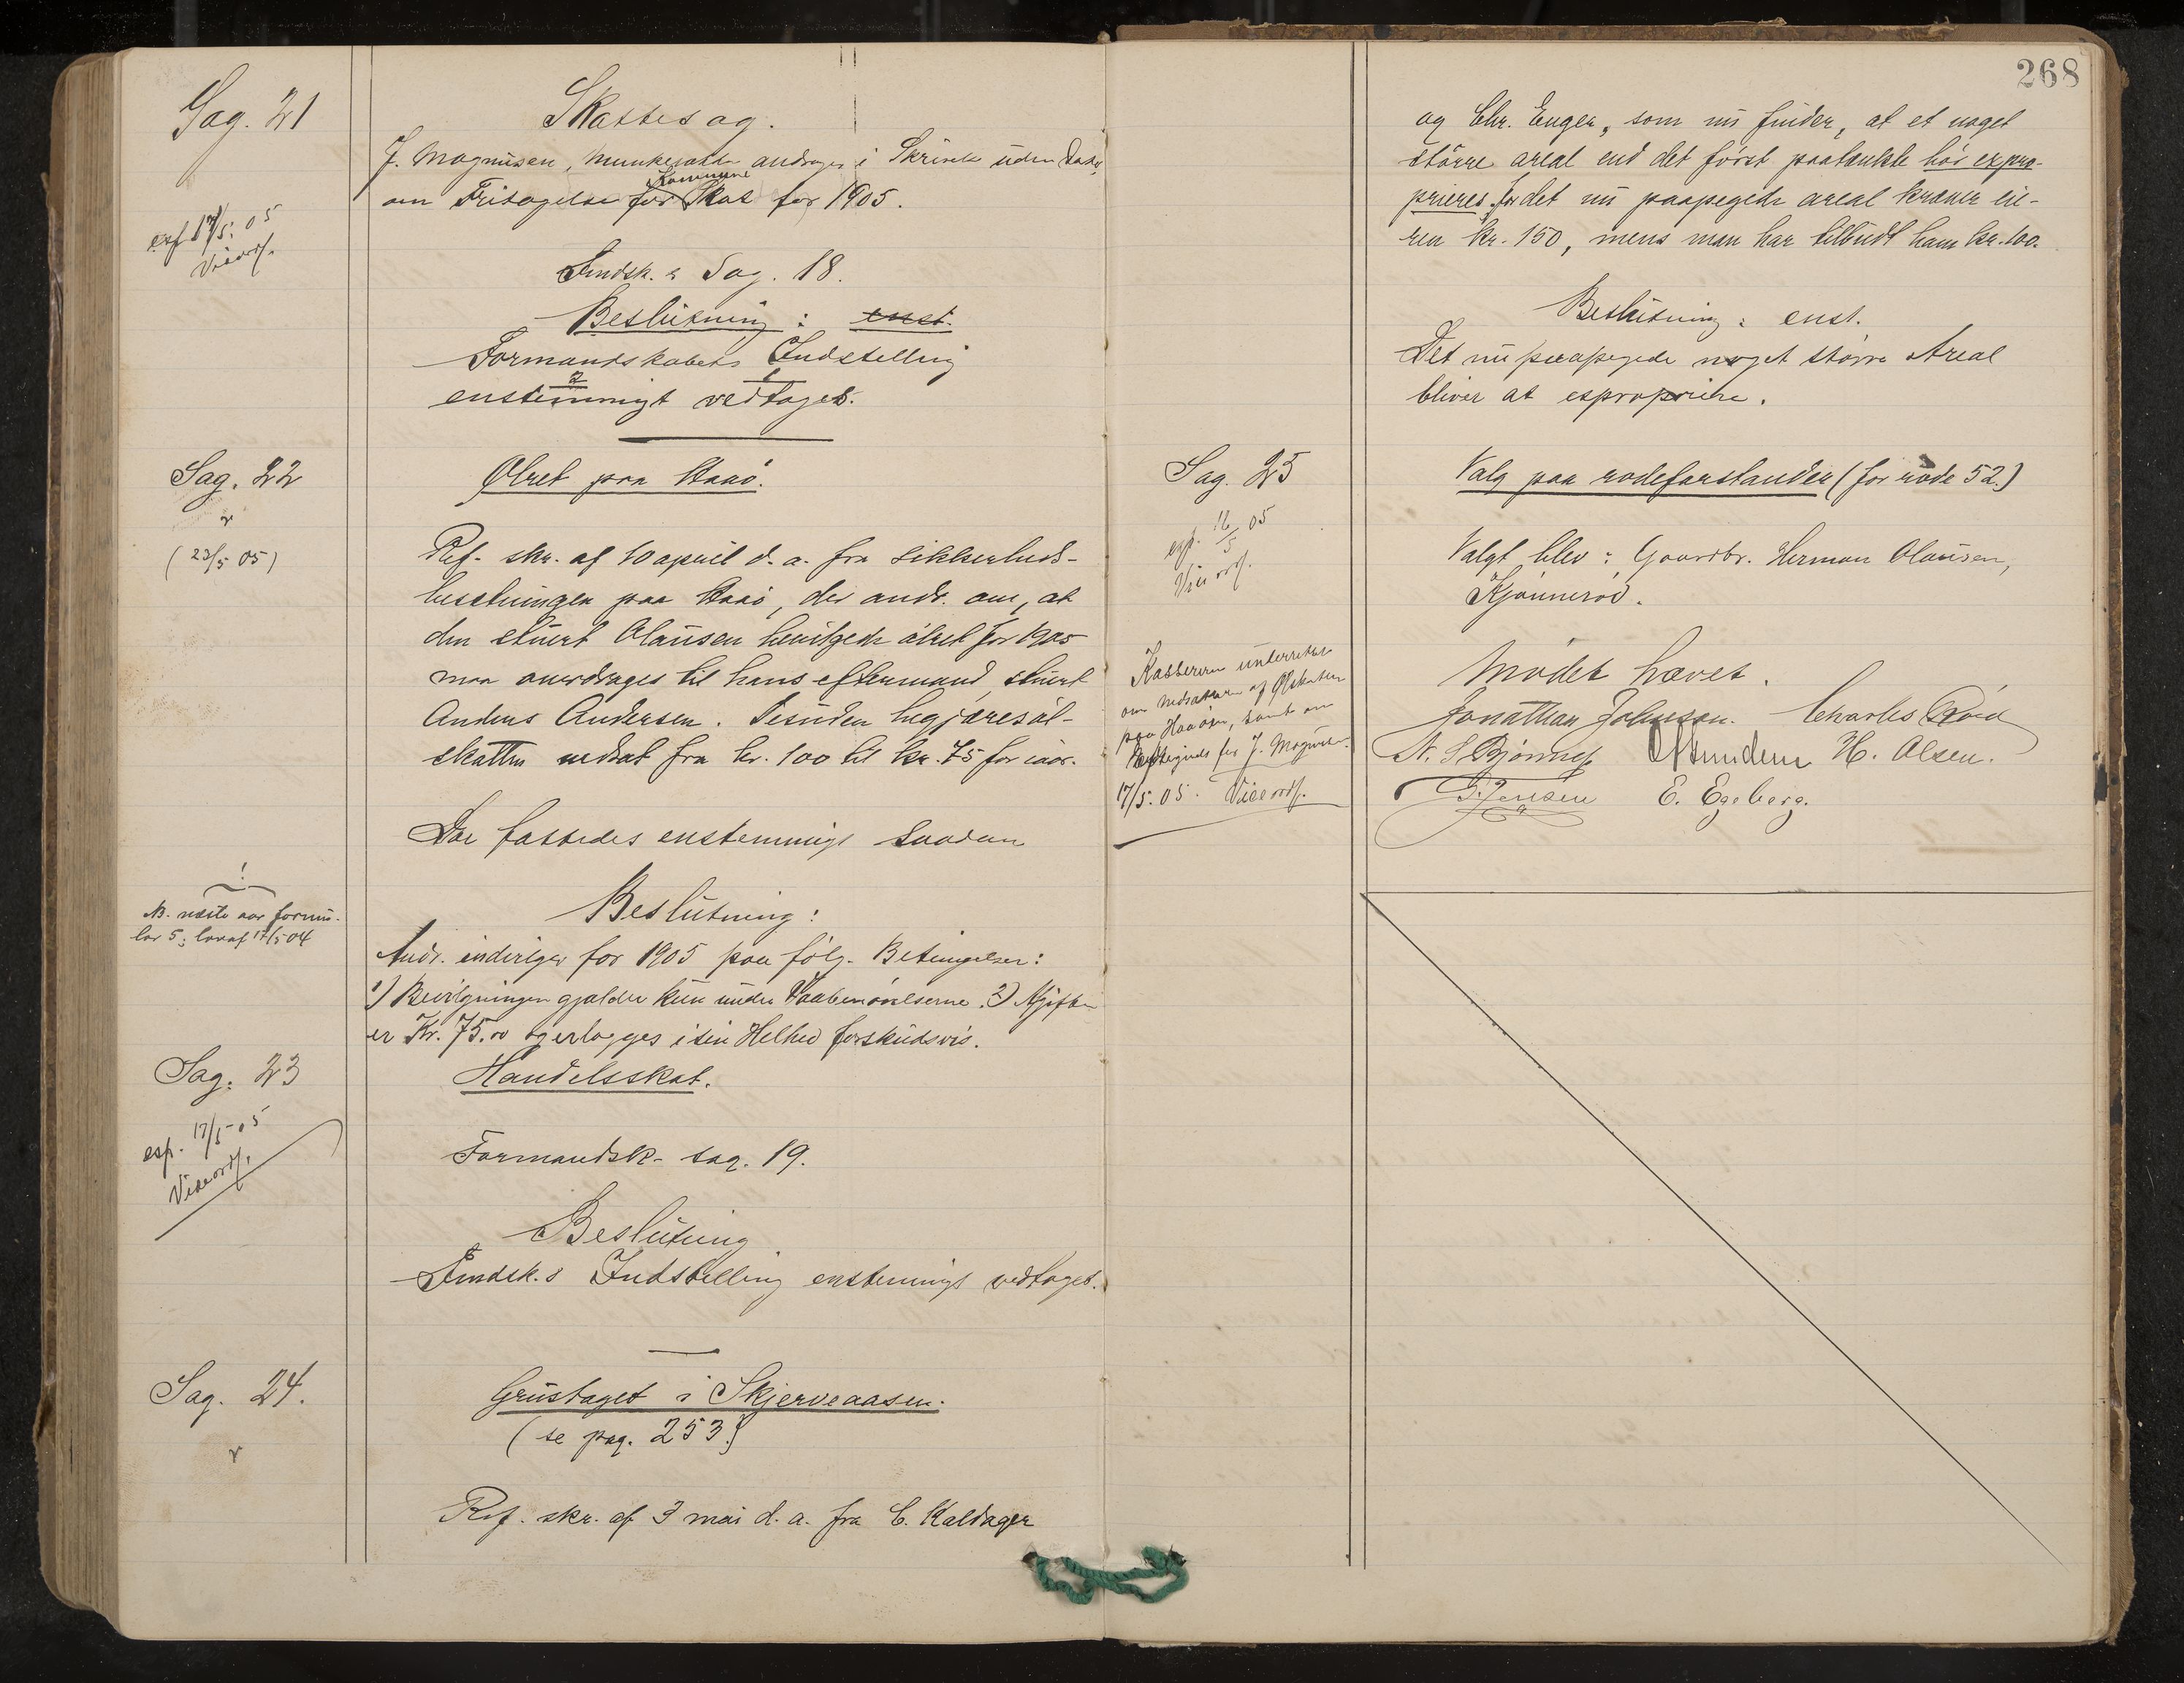 Sag. 21
exp 17/5. 05
Viceordf.
Skattesag.
J. Magnusen, Munkerød andrager i Skrivelse uden Dato,
om Fritagelse for Kommune Skat for 1905.
Fmdsk. Sag. 18.
Beslutning: enst.
Formandskabets Indstilling
enstemmigt vedtaget.
Sag. 22
(23/5 05)
Ølret paa Haaø.
Ref. skr. af 10 april d. a. fra sikkerheds-
besetningen paa Haaø, der andr. om, at
den stuert Olausen bevilgede ølret for 1905
maa overdrages til hans eftermand, stuert
Anders Andersen. Desuden begjæres øl-
skatten nedsat fra kr. 100 til kr. 75 for iaar.
Der fattedes enstemmigt saadan
N.B. næste aar formu-
lar 5; lov af 17/5 04
Beslutning:
Andr. indvilges for 1905 paa følg. Betingelser:
1) Bevilgningen gjælder kun under Vaabenøvelserne. 2) Afgiften
er Kr. 75.00 og erlægges i sin Helhed forskudsvis.
Sag. 23
exp. 17/5 05
Viceordf.
Handelsskat.
Formandsk. sag. 19.
Beslutning
Fmdsk.s Indstilling enstemmigt vedtaget.
Sag. 24.
Grustaget i Skjerveaasen.
(se pag. 253)
Ref. skr. af 3 mai d. a. fra C. Kaldager
268
og Chr. Enger, som nu finder, at et noget
større areal end det først paatænkte bør expro-
prieres. for det nu paapegede areal kræver eie-
ren kr. 150, mens man har tilbudt ham kr. 100.
Beslutning: enst.
Det nu paapegede noget større Areal
bliver at expropriere.
Sag. 25
exp. 16/5 05
Viceordf.
Valg paa rodeforstander (for rode 52.)
Valgt blev: Gaardbr. Herman Olausen,
Kjønnerød.
Kassereren underrettet
om nedsættelse af Ølskatten
paa Haaøen, samt om
for J. Magnusen
17/5. 05. Viceordf.
Mødet hævet.
Jonathan Johnson. Charles
N. S. Bjønnes H. Olsen.
G. Jensen E. Egeberg.